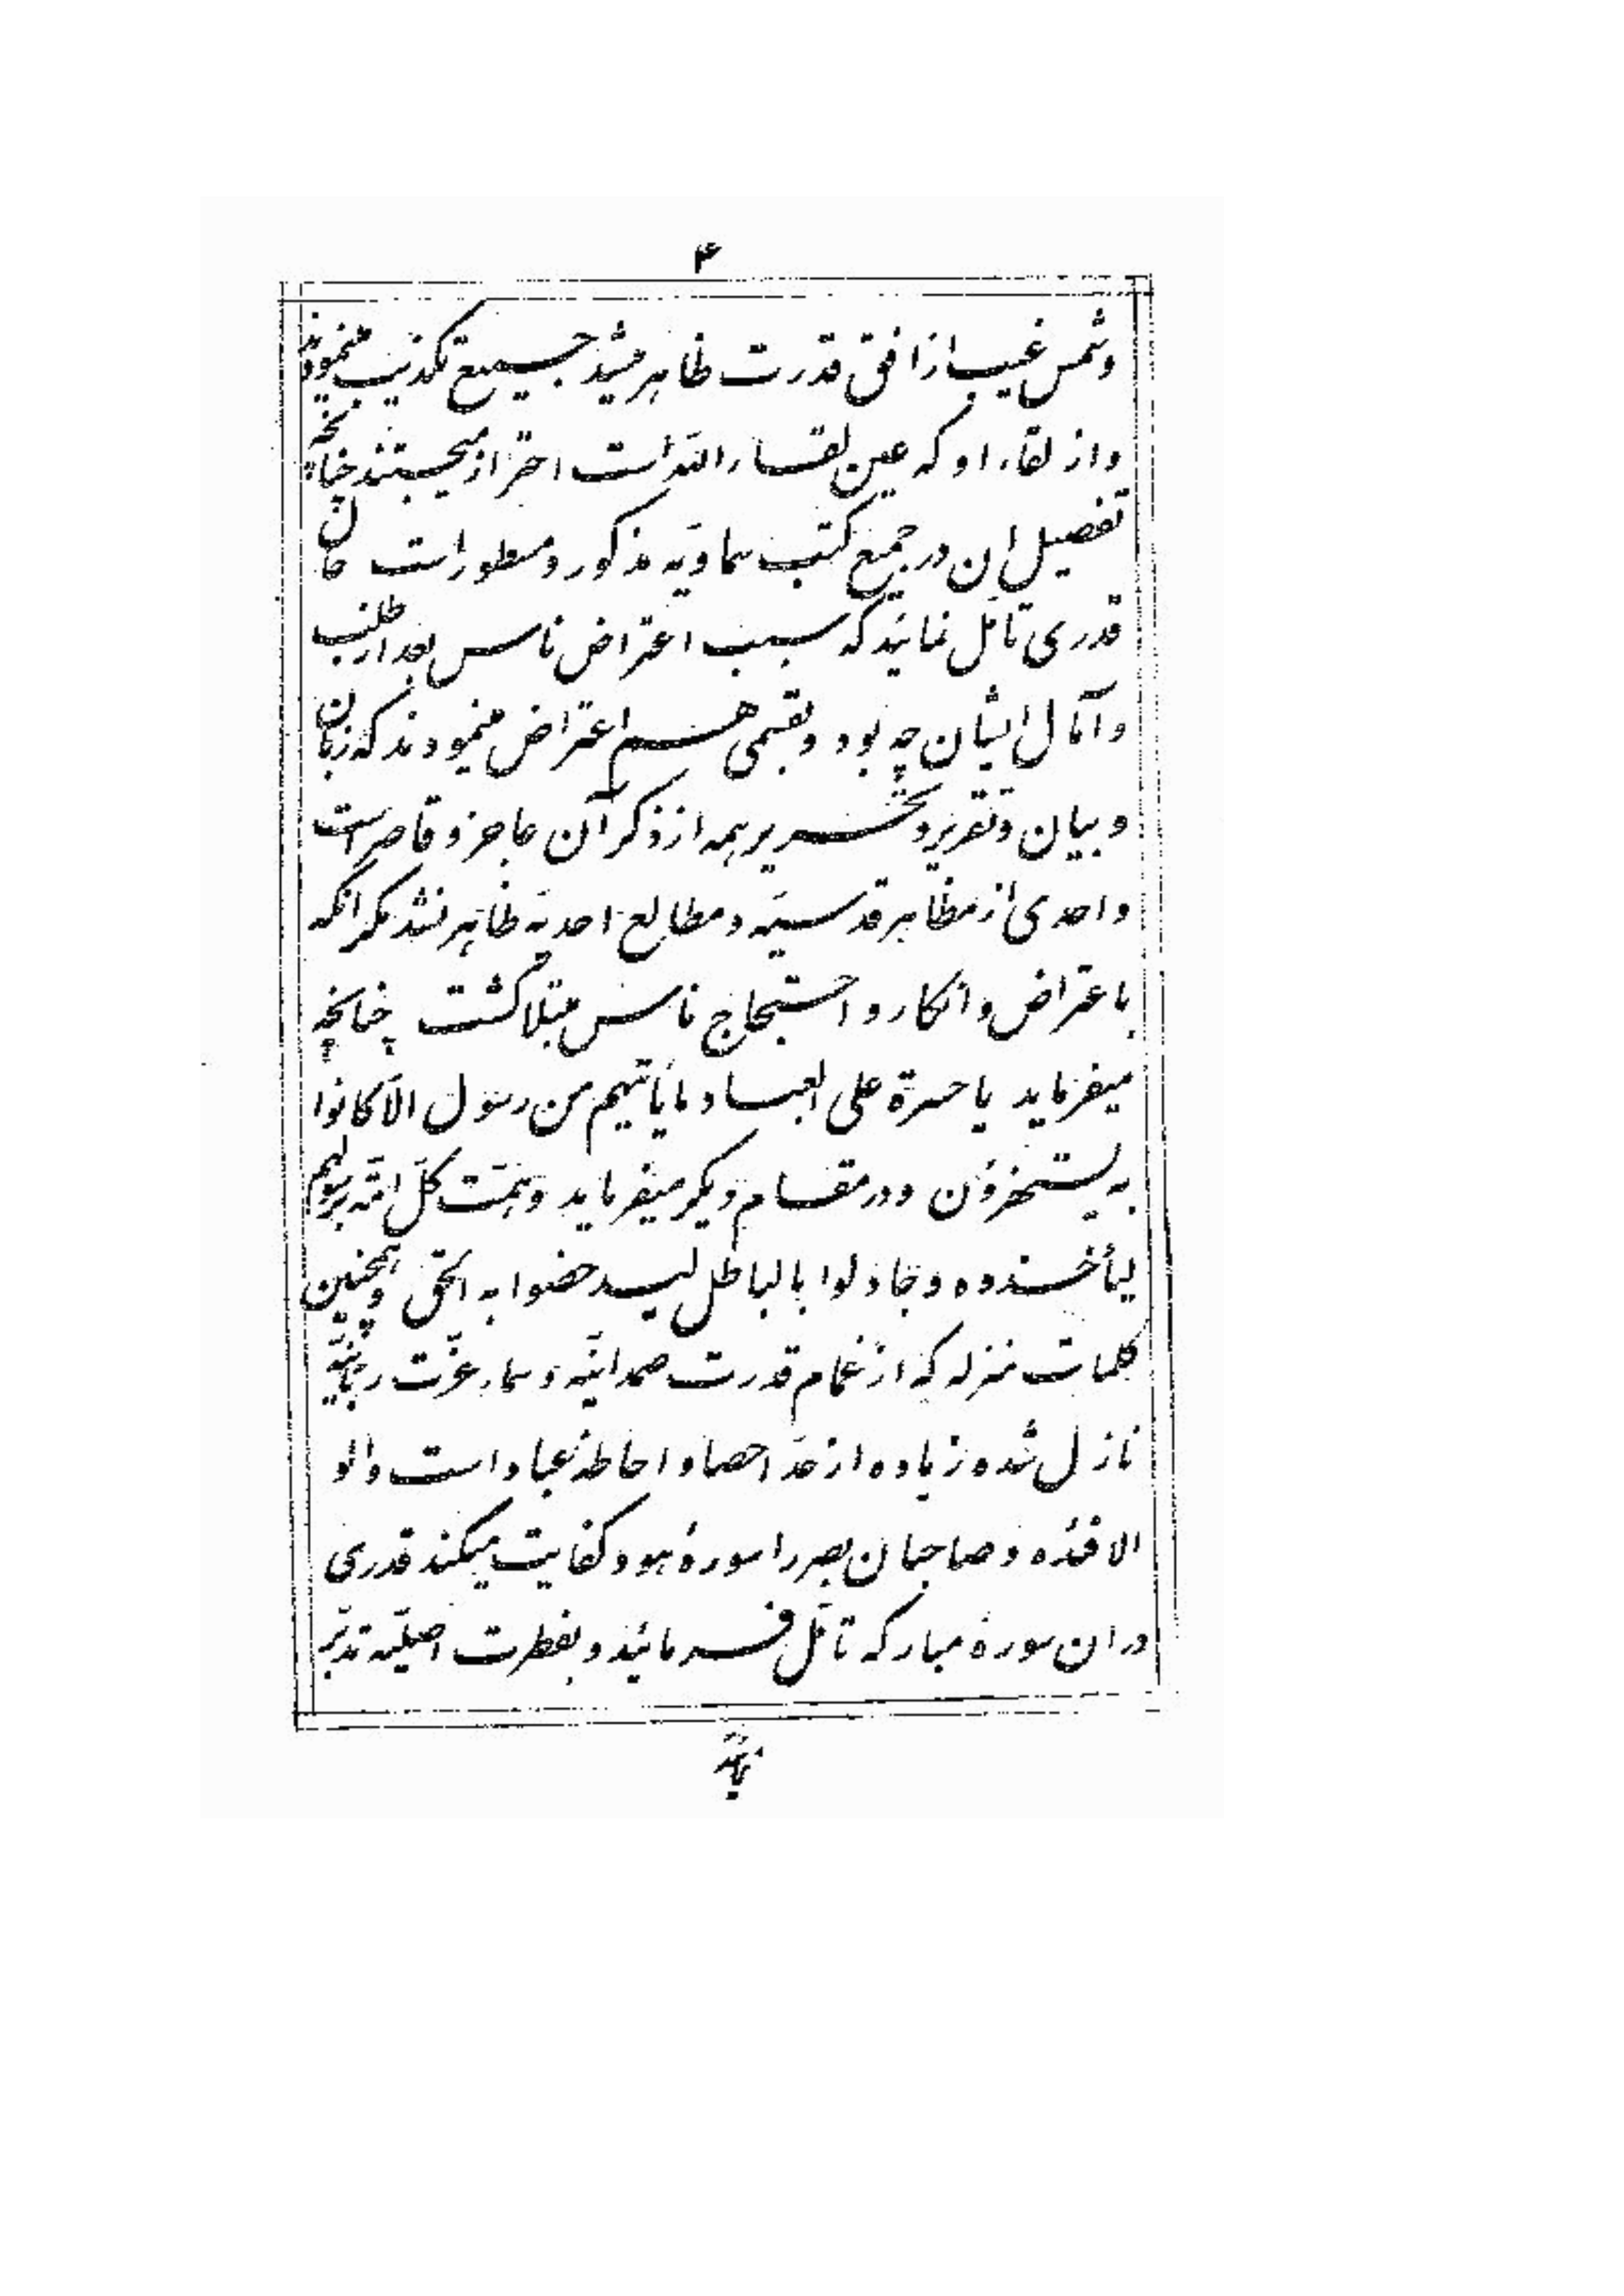 ۴
و شمس غیب از افق قدرت ظاهر میشد جمیع تکذیب مینمودند
و از لقاء او که عین لقاء الله است احتراز میجستند چنانچه
تفصیل ان در جمیع کتب سماویّه مذکور و مسطور است حال
قدری تأمّل نمائید که سبب اعتراض ناس بعد از طلب
و آمال ایشان چه بود و بقسمی هم اعتراض مینمودند که زبان
و بیان و تقریر و تحریر همه از ذکر آن عاجز و قاصر است
و احدی از مظاهر قدسیّه و مطالع احدیّه ظاهر نشد مگر انکه
باعتراض و انکار و احتجاج ناس مبتلا گشت چنانچه
میفرماید یا حسرة علی العباد ما یأتیهم من رسول الّا کانوا
به یستهزؤن و در مقام دیگر میفرماید و همّت کلّ امّة برسولهم
لیأخذوه و جادلوا بالباطل لیدحضوا به الحق و همچنین
کلمات منزله که از غمام قدرت صمدانیّه و سماء عزّت ربّانیّه
نازل شده زیاده از حدّ احصا و احاطهٔ عباد است و اولو
الافئده و صاحبان بصر را سورهٔ هود کفایت میکند قدری
در ان سورهٔ مبارکه تأمّل فرمائید و بفطرت اصلیّه تدبّر